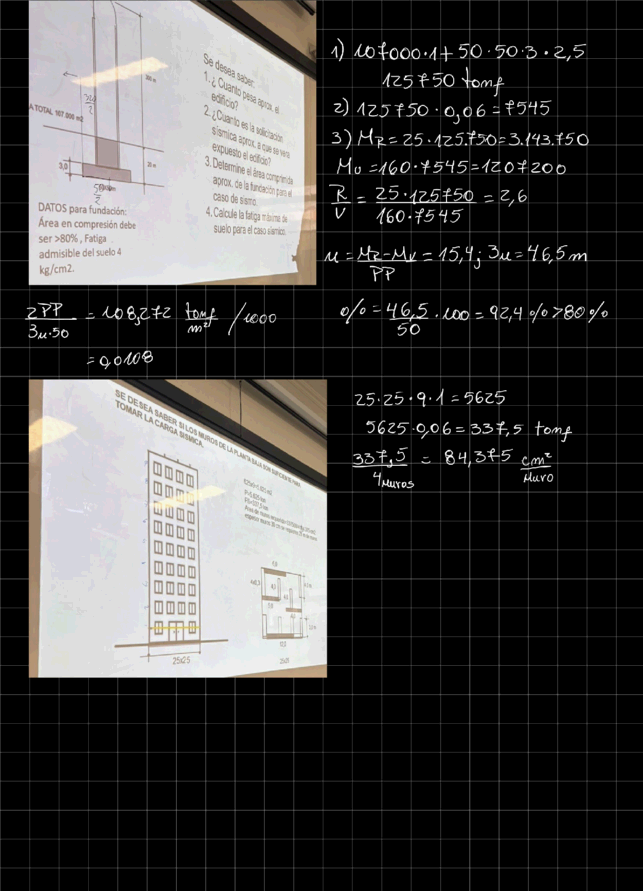 Se desea saber:
1. ¿ Cuanto pesa aprox. el
edificio?
2. ¿Cuanto es la solicitación
sísmica aprox. a que se vera
expuesto el edificio?
3. Determine el área comprimida
aprox. de la fundación para el
caso de sismo.
4. Calcule la fatiga máxima de
suelo para el caso sísmico.
A TOTAL 107.000 m2
3,0
DATOS para fundación:
Área en compresión debe
ser >80% , Fatiga
admisible del suelo 4
kg/cm2.
1) 107000·1+50·50·3·2,5
125750 tonf
2) 125750·0,06=7545
3) MR=25·125.750=3.143.750
Mv=160·7545=1207200
R/V = 25·125750 / 160·7545 = 2,6
u = MR-MV / PP = 15,4; 3u=46,5 m
% = 46,5 / 50 · 100 = 92,4 % >80 %
2PP / 3u·50 = 108,272 tonf/m² /1000
= 0,0108
SE DESEA SABER SI LOS MUROS DE LA PLANTA BAJA SON SUFICIENTE PARA
TOMAR LA CARGA SISMICA.
25x25
25·25·9·1=5625
5625·0,06=337,5 tonf
337,5 / 4 muros = 84,375 cm²/muro